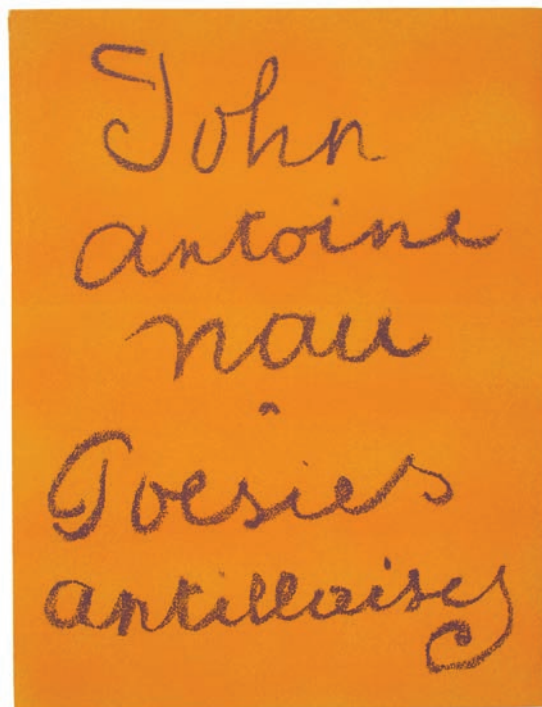 John
antoine
nau
Poesies
antillaises